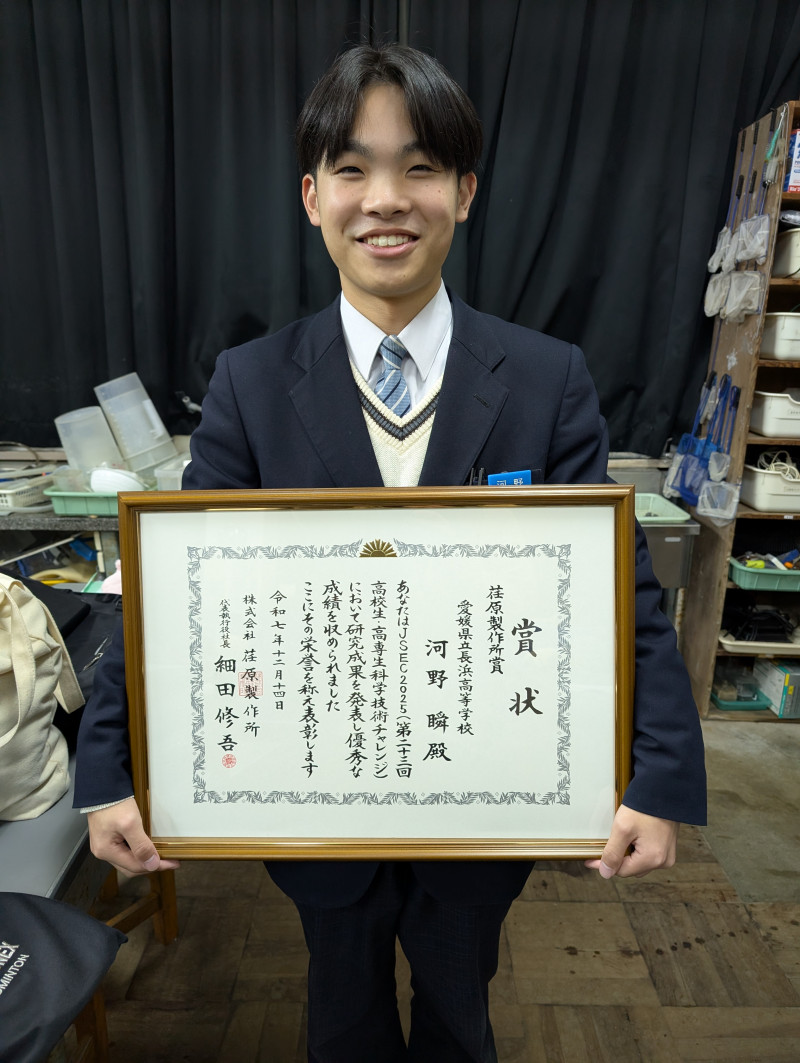 賞状
荏原製作所賞
愛媛県立長浜高等学校
河野 瞬殿
あなたはJSEC2025(第二十三回
高校生・高専生科学技術チャレンジ)
において研究成果を発表し優秀な
成績を収められました
ここにその栄誉を称え表彰します
令和七年十二月十四日
株式会社 荏原製作所
代表執行役社長 細田修吾
河野